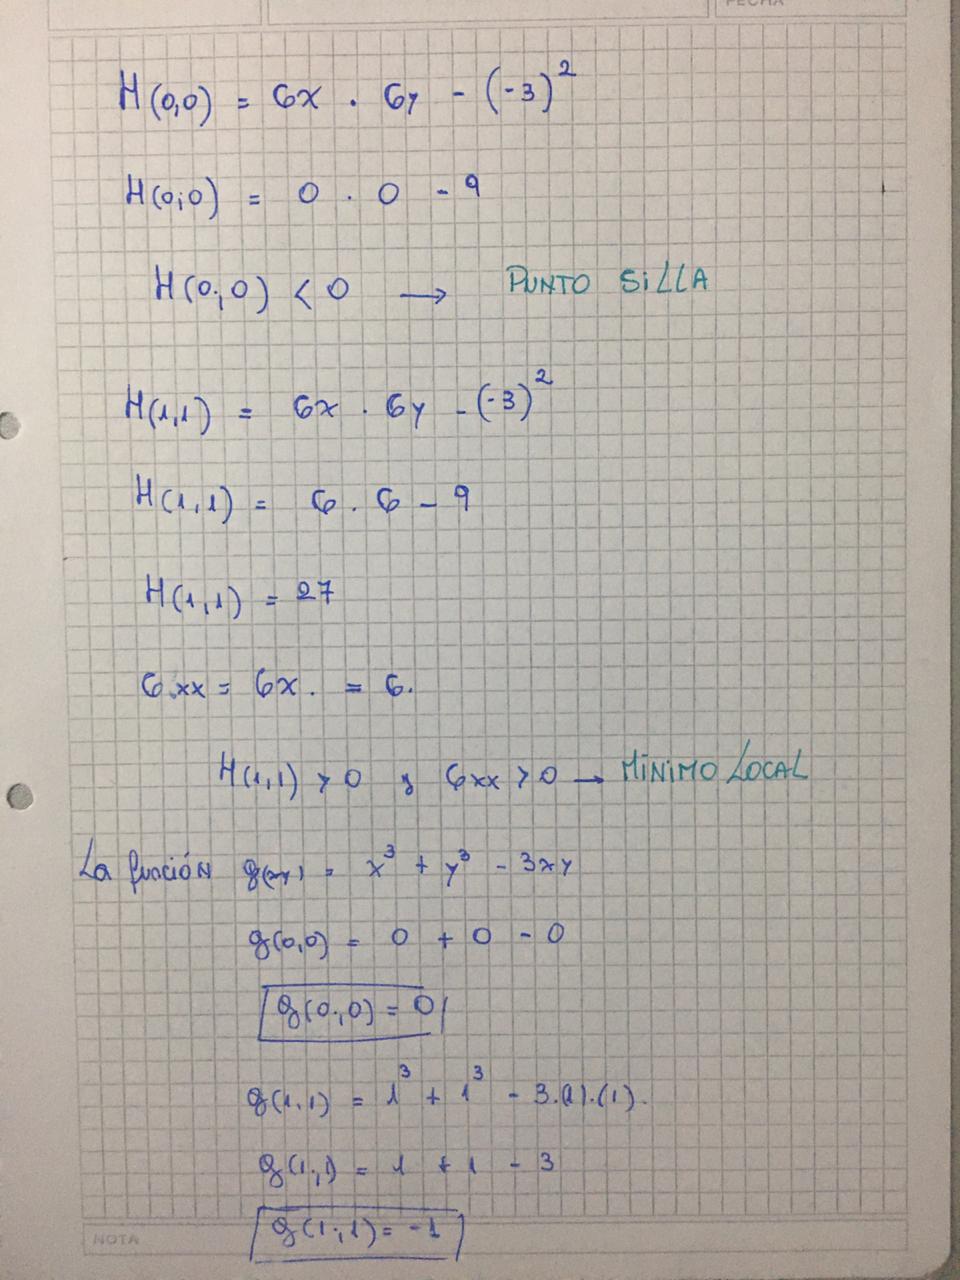 FECHA
H(0,0) = 6x . 6y - (-3)²
H(0,0) = 0 . 0 - 9
H(0,0) < 0 → PUNTO SILLA
H(1,1) = 6x . 6y - (-3)²
H(1,1) = 6 . 6 - 9
H(1,1) = 27
Gxx = 6x. = 6.
H(1,1) > 0 y Gxx > 0 → MÍNIMO LOCAL
La función g(x,y) = x³ + y³ - 3xy
g(0,0) = 0 + 0 - 0
g(0,0) = 0
g(1,1) = 1³ + 1³ - 3.(1).(1).
g(1,1) = 1 + 1 - 3
g(1,1) = -1
NOTA